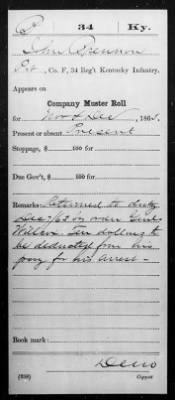 P 34 Ky.
John Brennon
Pvt, Co. F, 34 Reg't Kentucky Infantry.
Appears on
Company Muster Roll
for Nov & Dec, 1863.
Present or absent Present
Stoppage, $ 100 for
Due Gov't, $ 100 for
Remarks: Returned to duty
Dec 7/63 by order Genl
Willcox Ten dollars to
be deducted from his
pay for his arrest -
Book mark:
(358)
Copyist.